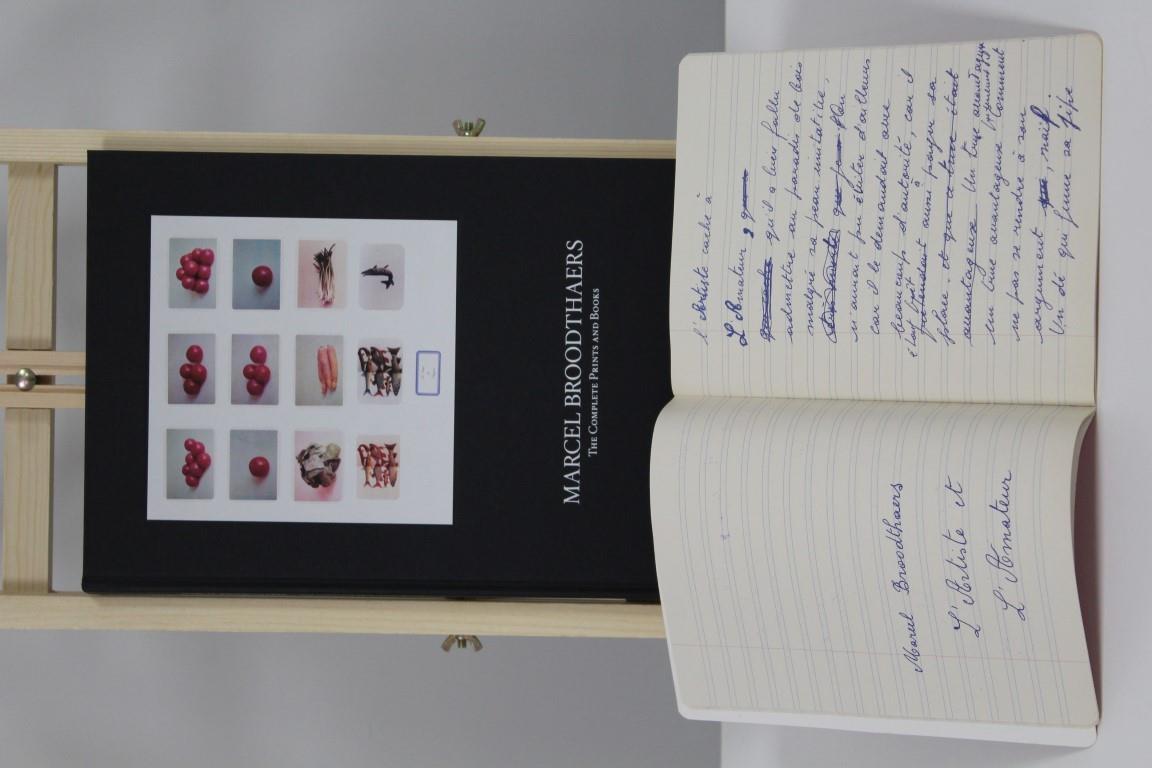 MARCEL BROODTHAERS
THE COMPLETE PRINTS AND BOOKS
Marcel Broodthaers
L'Artiste et
L'Amateur
l'Artiste cache à
L'Amateur
qu'il a bien fallu
admettre au paradis de bois
malgré sa peau imitative,
n'aurait pu éviter d'ailleurs
car il le demandait avec
beaucoup d'autorité, car il
aussi payer sa
place. et que ce truc était
avantageux Un truc
un line avantageux comment
ne pas se rendre à son
argument naïf.
Un dé qui fume sa pipe